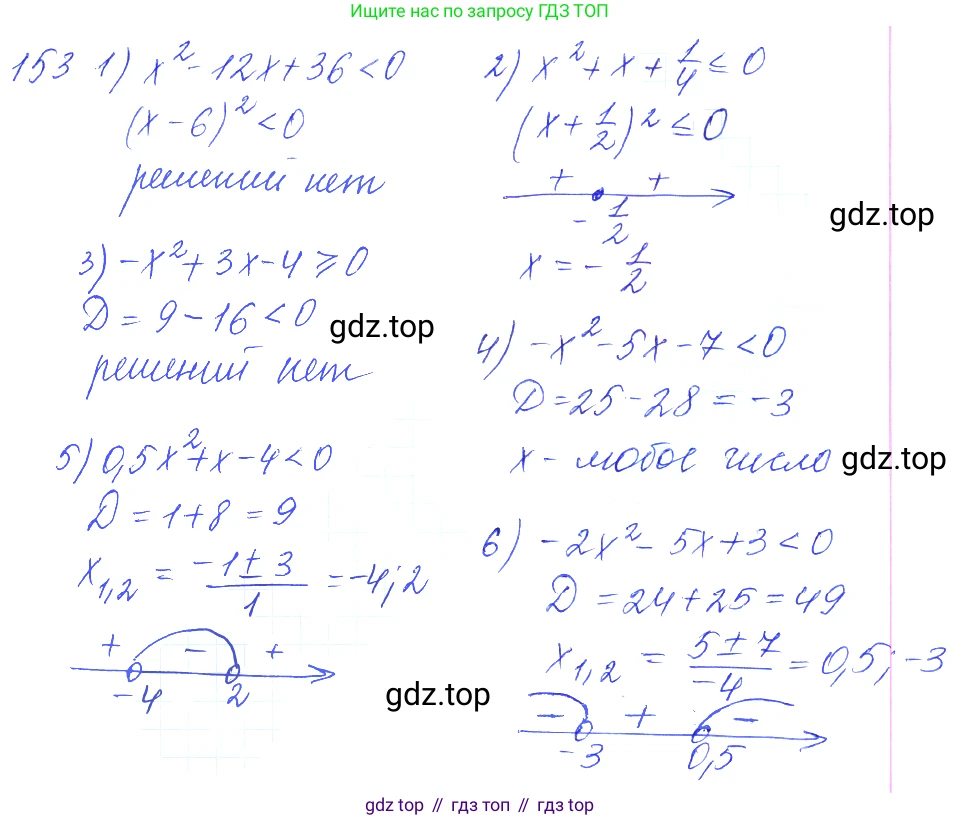 Ищите нас по запросу ГДЗ ТОП
153 1) x² - 12x + 36 < 0
(x - 6)² < 0
решений нет
2) x² + x + 1/4 ≤ 0
(x + 1/2)² ≤ 0
+ +
- 1/2
x = - 1/2
gdz.top
3) -x² + 3x - 4 ⩾ 0
D = 9 - 16 < 0
решений нет
gdz.top
4) -x² - 5x - 7 < 0
D = 25 - 28 = -3
x - любое число
gdz.top
5) 0,5x² + x - 4 < 0
D = 1 + 8 = 9
x₁,₂ = (-1 ± 3)/1 = -4; 2
+ - +
-4 2
gdz.top
6) -2x² - 5x + 3 < 0
D = 24 + 25 = 49
x₁,₂ = (5 ± 7)/-4 = 0,5; -3
- + -
-3 0,5
gdz top // гдз топ // gdz top